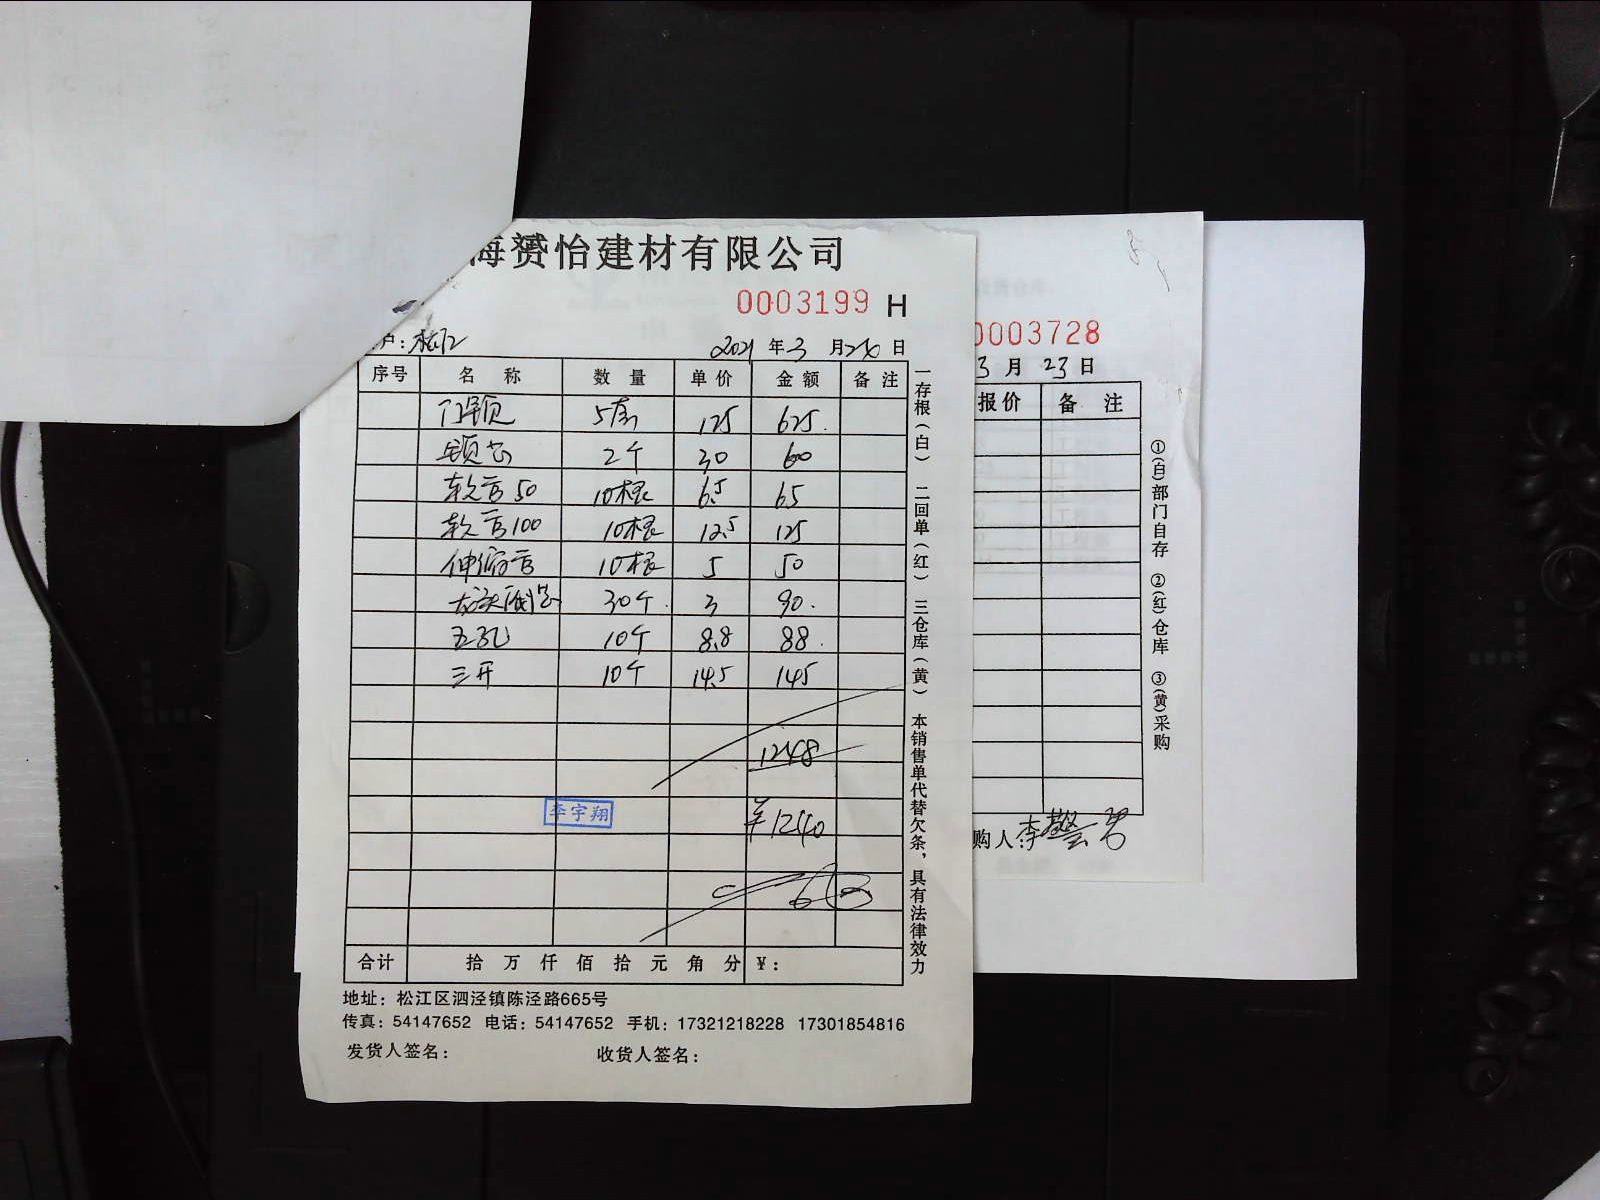 海赟怡建材有限公司
0003199 H
户：松江
2021 年 3 月 26 日
序号 名 称 数 量 单 价 金 额 备 注
门锁 5套 125 625.
锁芯 2个 30 60
软管50 10根 6.5 65
软管100 10根 12.5 125
伸缩管 10根 5 50
龙头阀芯 30个 3 90.
五孔 10个 8.8 88.
三开 10个 14.5 145
1248
李宇翔
¥1240
合计 拾 万 仟 佰 拾 元 角 分 ¥：
地址：松江区泗泾镇陈泾路665号
传真：54147652 电话：54147652 手机：17321218228 17301854816
发货人签名： 收货人签名：
一存根（白） 二回单（红） 三仓库（黄） 本销售单代替欠条，具有法律效力
0003728
3 月 23 日
报价 备 注
①(白)部门自存 ②(红)仓库 ③(黄)采购
购人：李